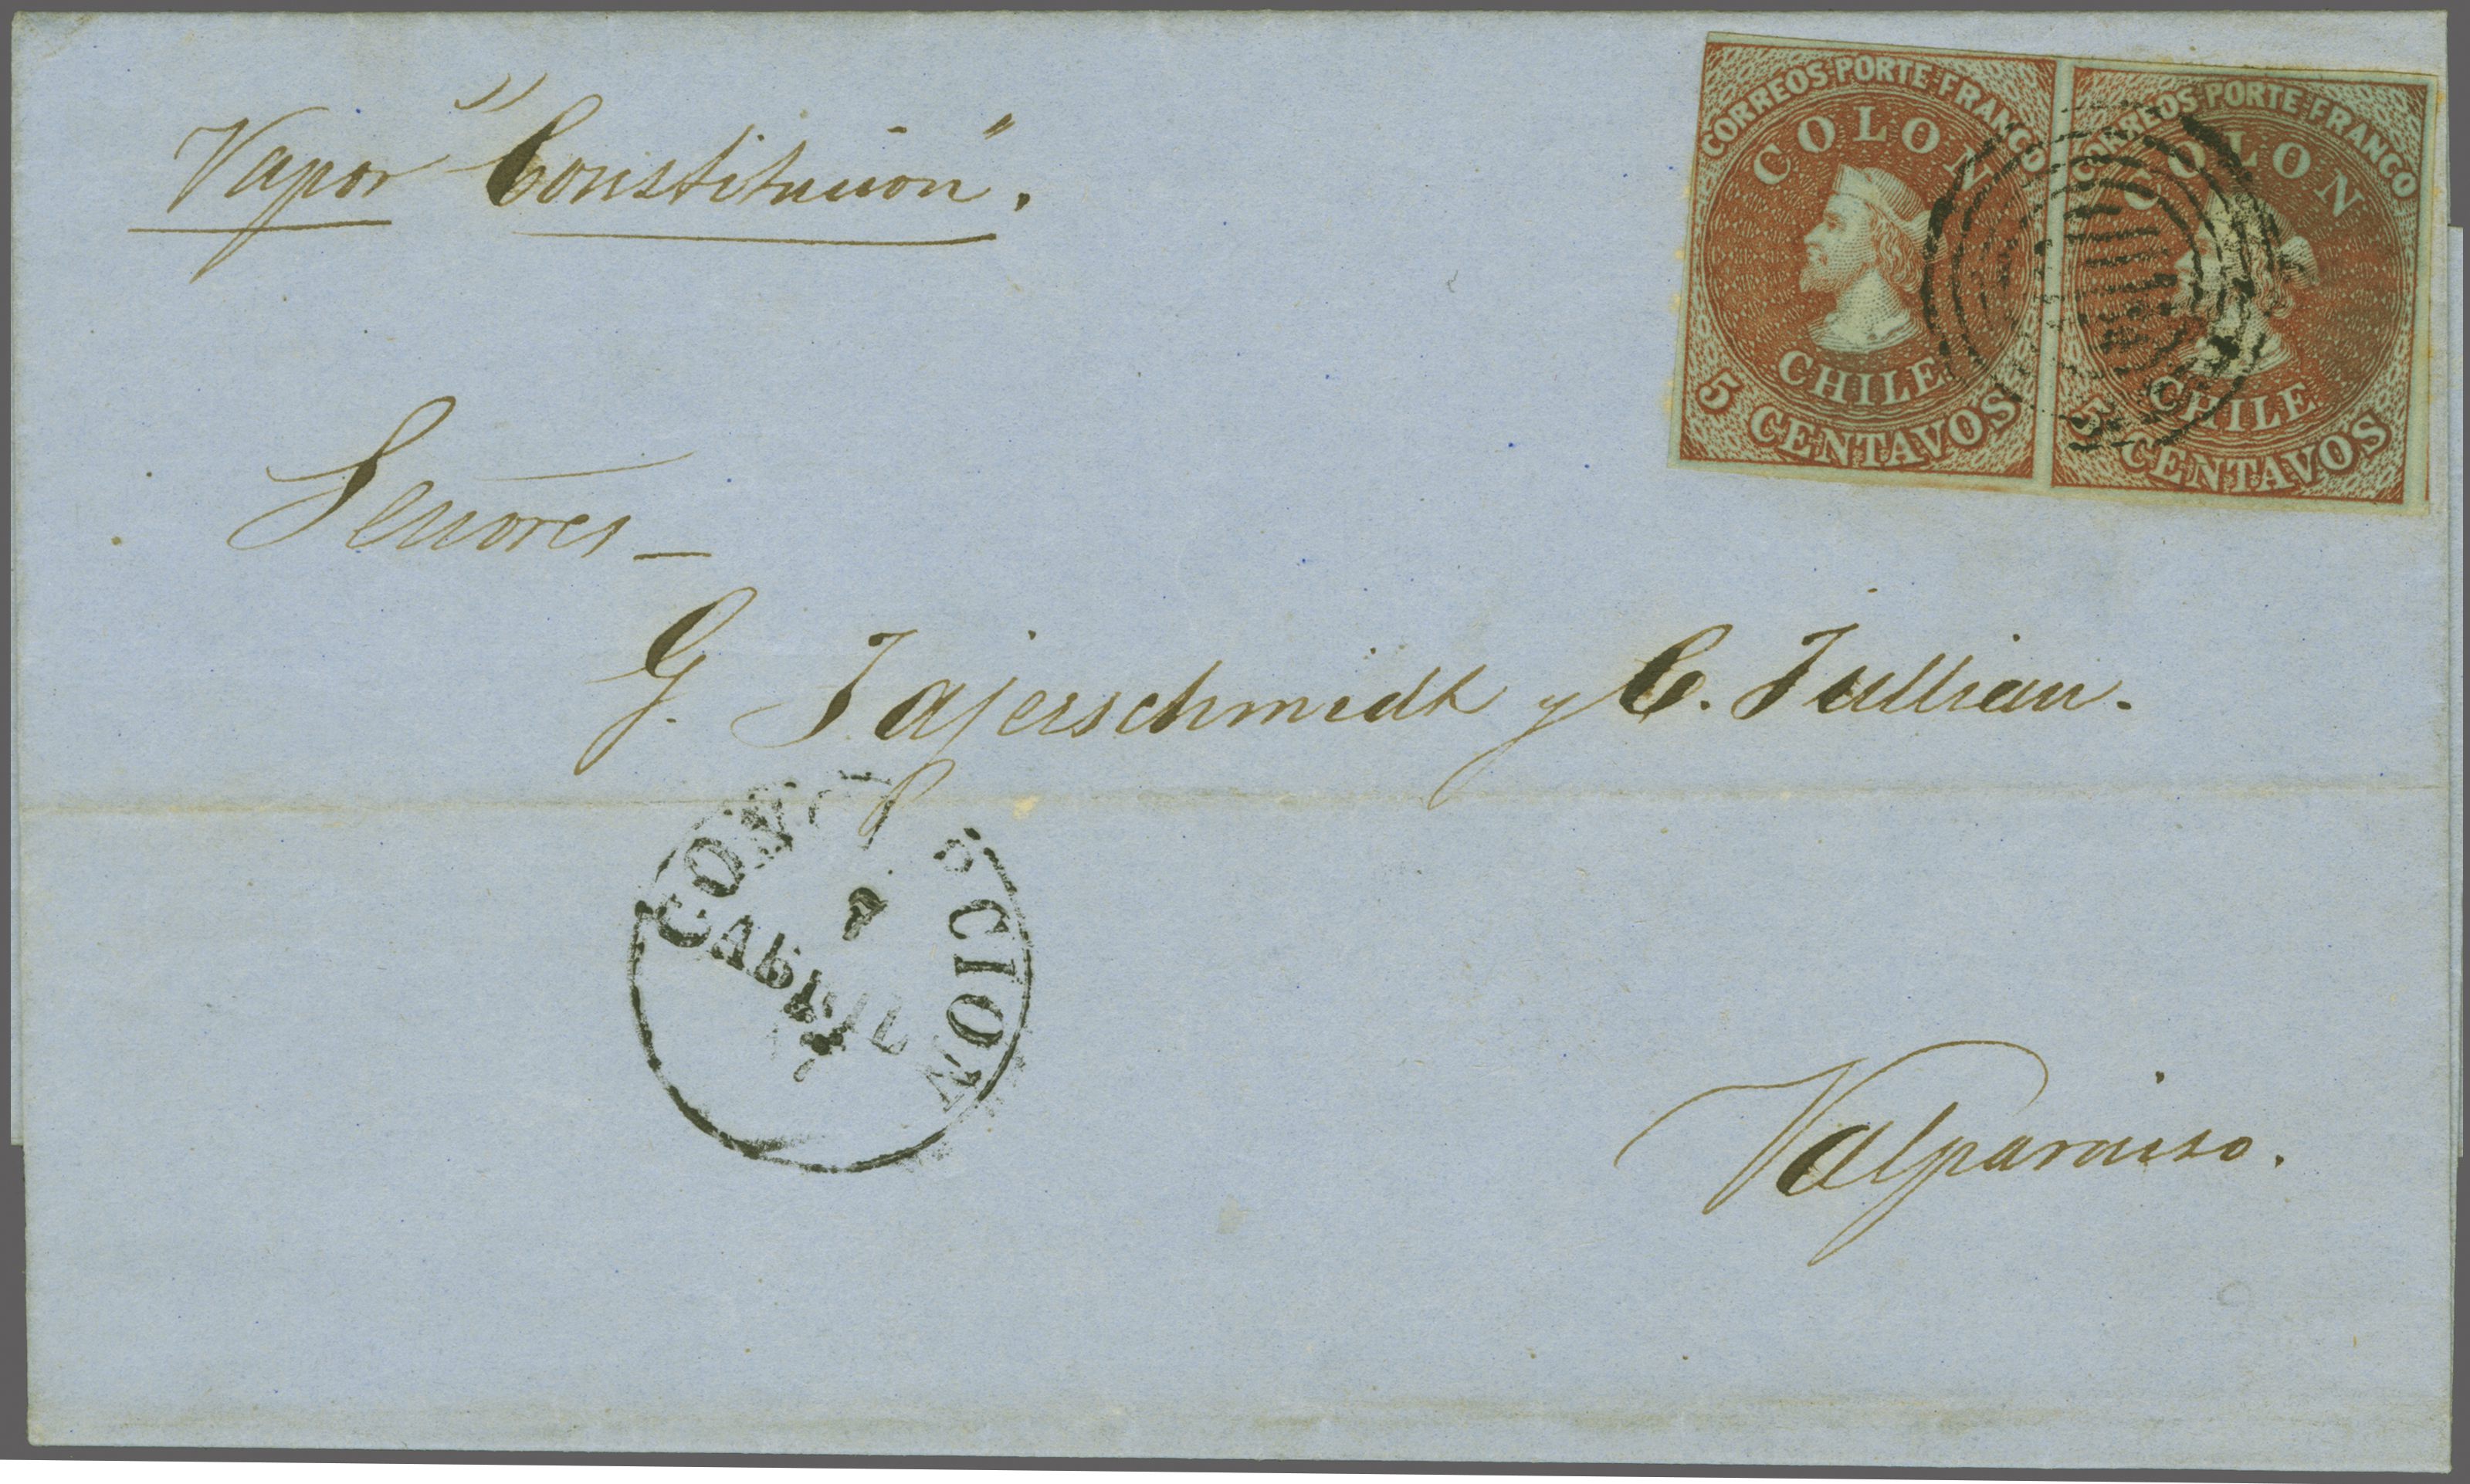 Vapor "Constitucion".
CORREOS·PORTE·FRANCO
COLON
CHILE
5 CENTAVOS
CORREOS·PORTE·FRANCO
COLON
CHILE
5 CENTAVOS
Señores –
G. Tajerschmidt y C. Jullian.
7
ABRIL
Valparaiso.